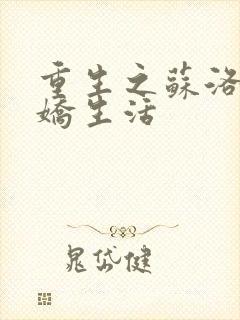 重生之蘇洛
嬌生活
晁岱健